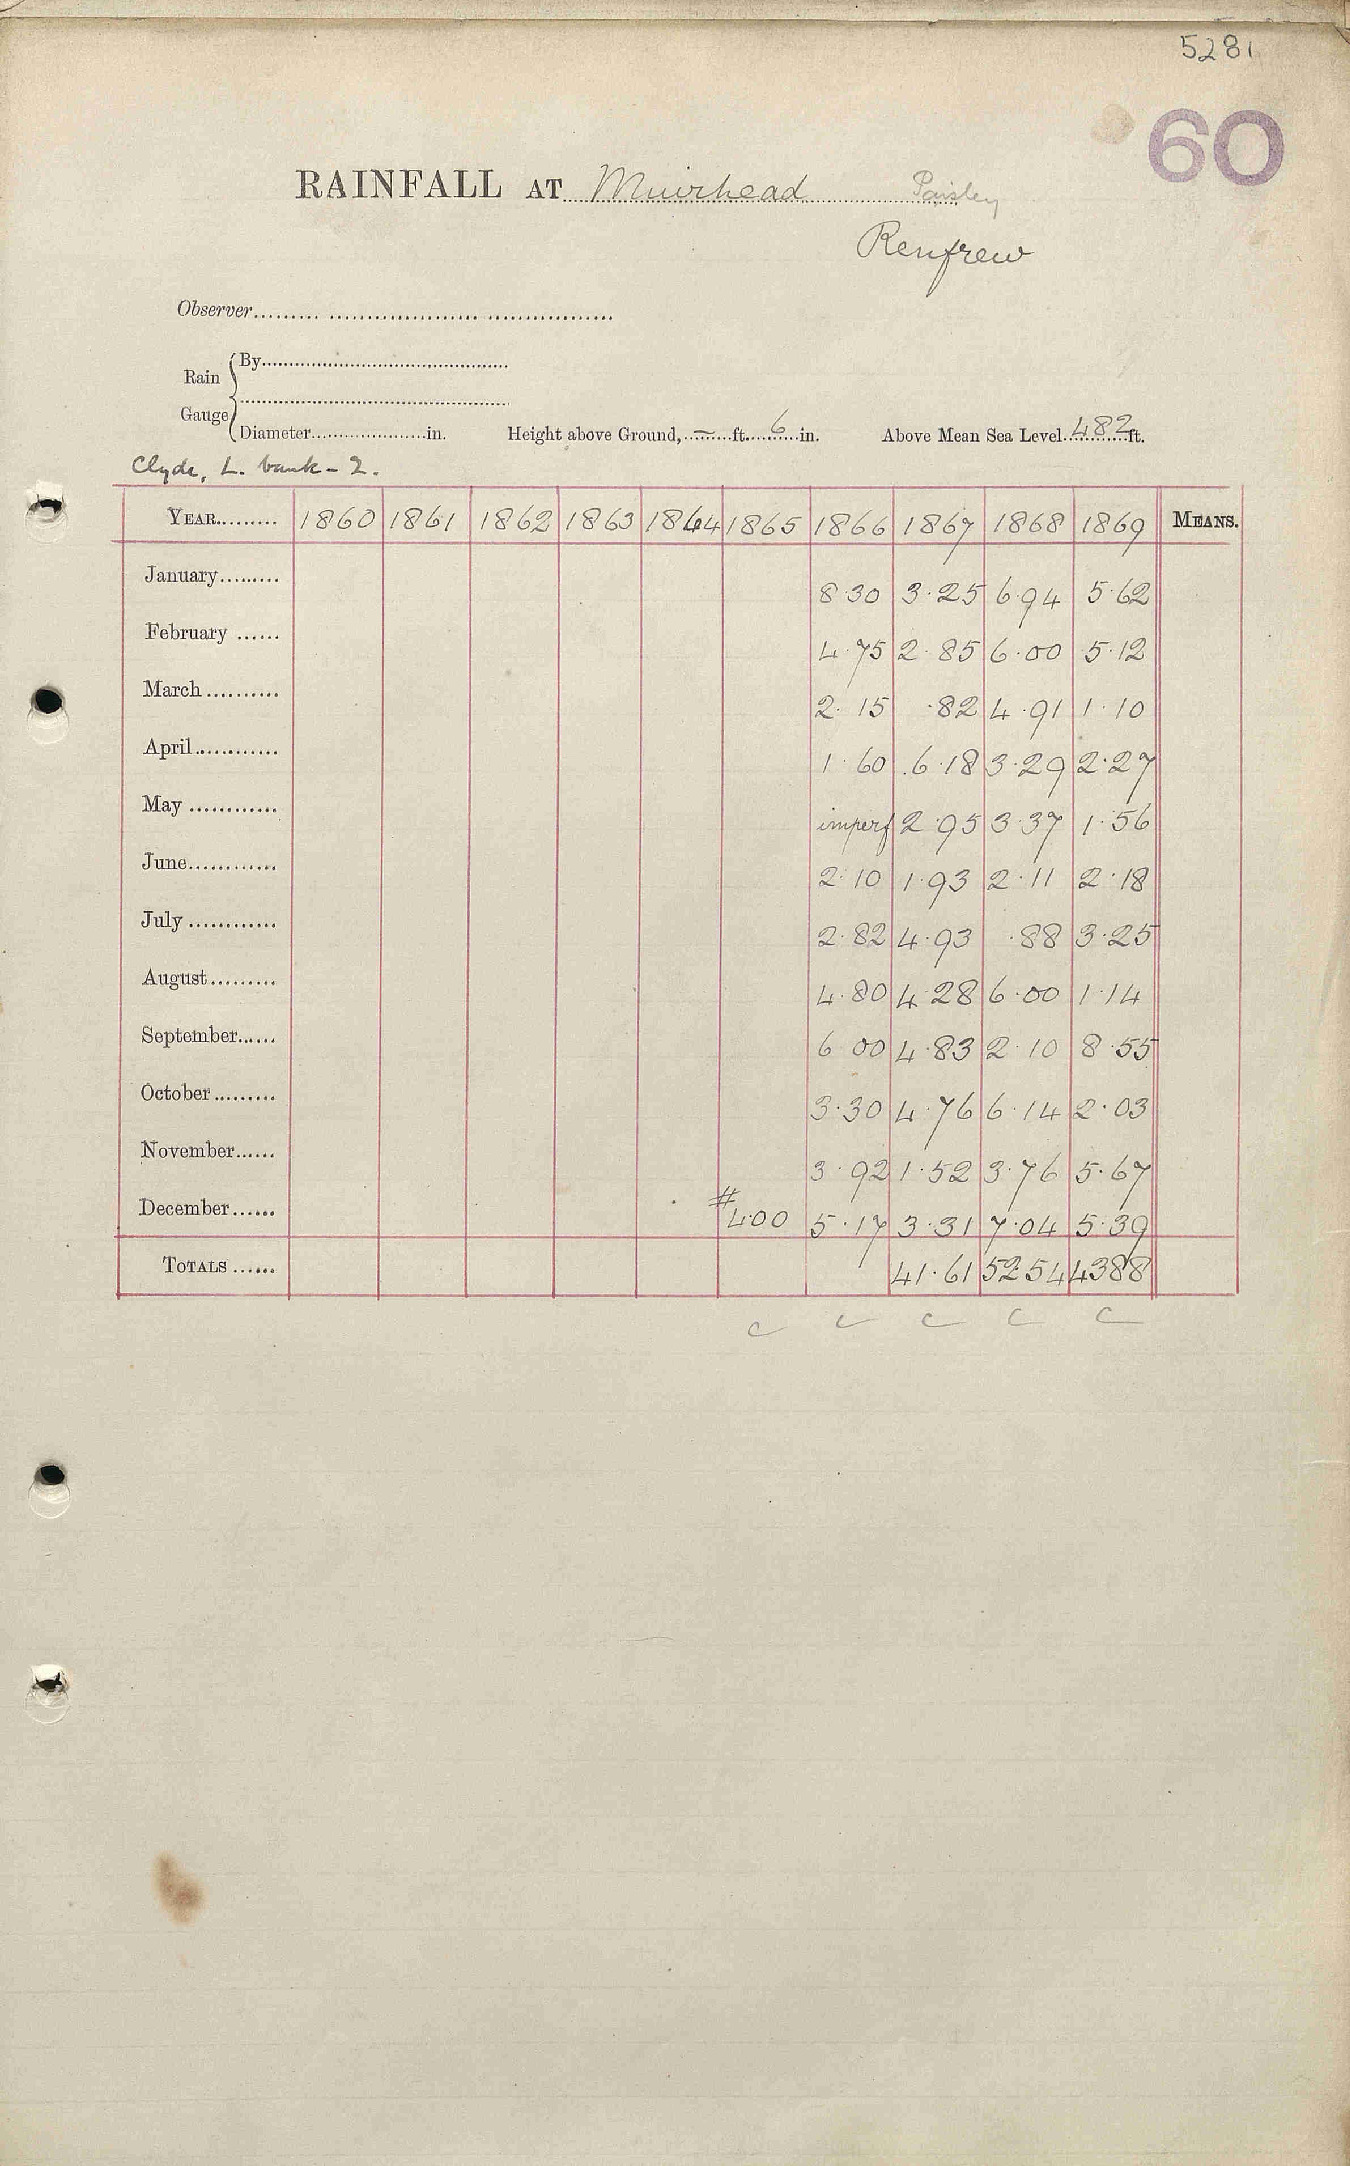 5281
60
RAINFALL AT Muirhead Paisley
Renfrew
Observer
Rain Gauge
By
Diameter in. Height above Ground, – ft. 6 in. Above Mean Sea Level 482 ft.
Clyde, L. bank - 2.
YEAR 1860 1861 1862 1863 1864 1865 1866 1867 1868 1869 MEANS.
January 8.30 3.25 6.94 5.62
February 4.75 2.85 6.00 5.12
March 2.15 .82 4.91 1.10
April 1.60 6.18 3.29 2.27
May imperf 2.95 3.37 1.56
June 2.10 1.93 2.11 2.18
July 2.82 4.93 .88 3.25
August 4.80 4.28 6.00 1.14
September 6.00 4.83 2.10 8.55
October 3.30 4.76 6.14 2.03
November 3.92 1.52 3.76 5.67
December #4.00 5.17 3.31 7.04 5.39
TOTALS 41.61 52.54 43.88
c c c c c